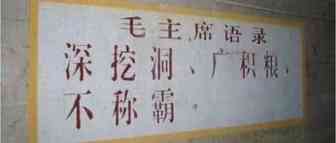 毛主席语录
深挖洞、广积粮、
不称霸